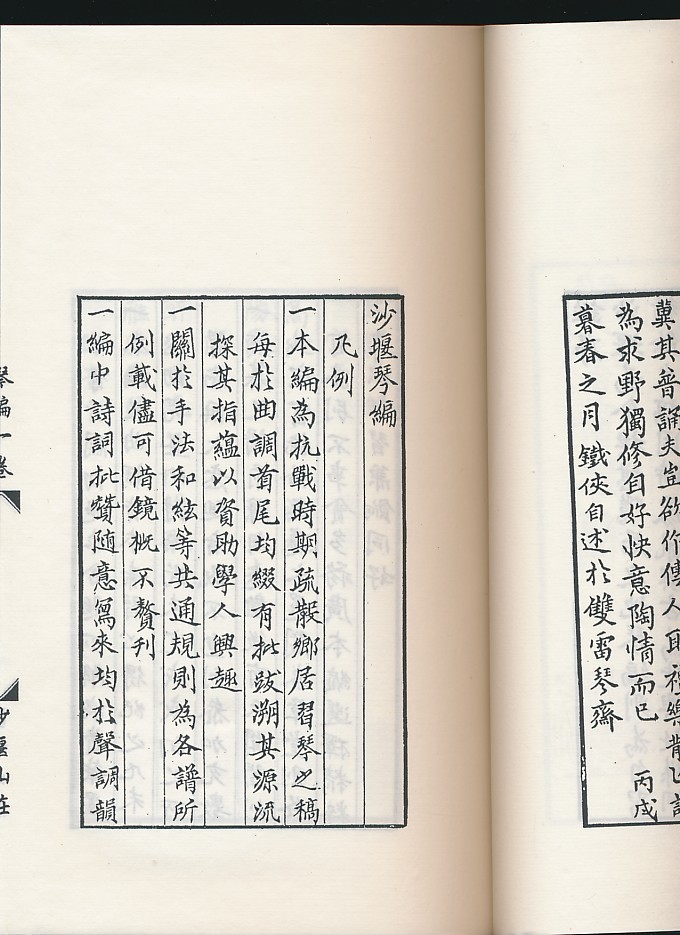 冀其普誦夫豈欲作傳人耶禮樂散亡
為求野獨修自好快意陶情而已 丙戌
暮春之月鐵俠自述於雙雷琴齋
沙堰琴編
凡例
一本編為抗戰時期疏散鄉居習琴之稿
每於曲調首尾均綴有批跋溯其源流
探其指蘊以資助學人興趣
一關於手法和絃等共通規則為各譜所
例載儘可借鏡概不贅刊
一編中詩詞批贊隨意寫來均於聲調韻
琴編一卷
沙堰山莊